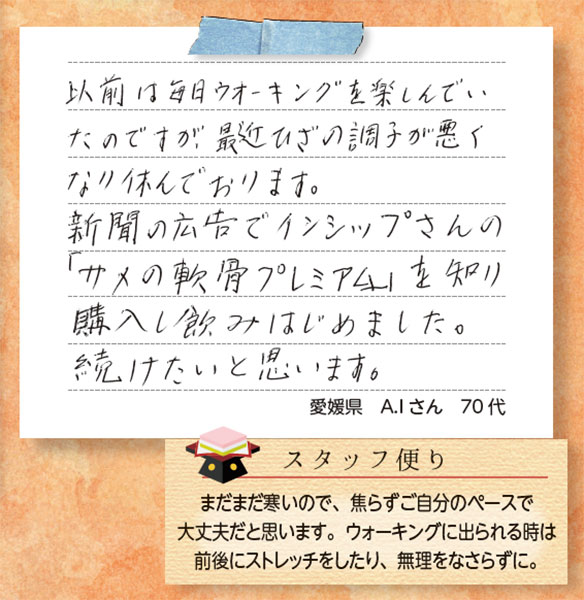 以前は毎日ウオーキングを楽しんでい
たのですが、最近ひざの調子が悪く
なり休んでおります。
新聞の広告でインシップさんの
「サメの軟骨プレミアム」を知り
購入し飲みはじめました。
続けたいと思います。
愛媛県 A.Iさん 70代
スタッフ便り
まだまだ寒いので、焦らずご自分のペースで
大丈夫だと思います。ウォーキングに出られる時は
前後にストレッチをしたり、無理をなさらずに。